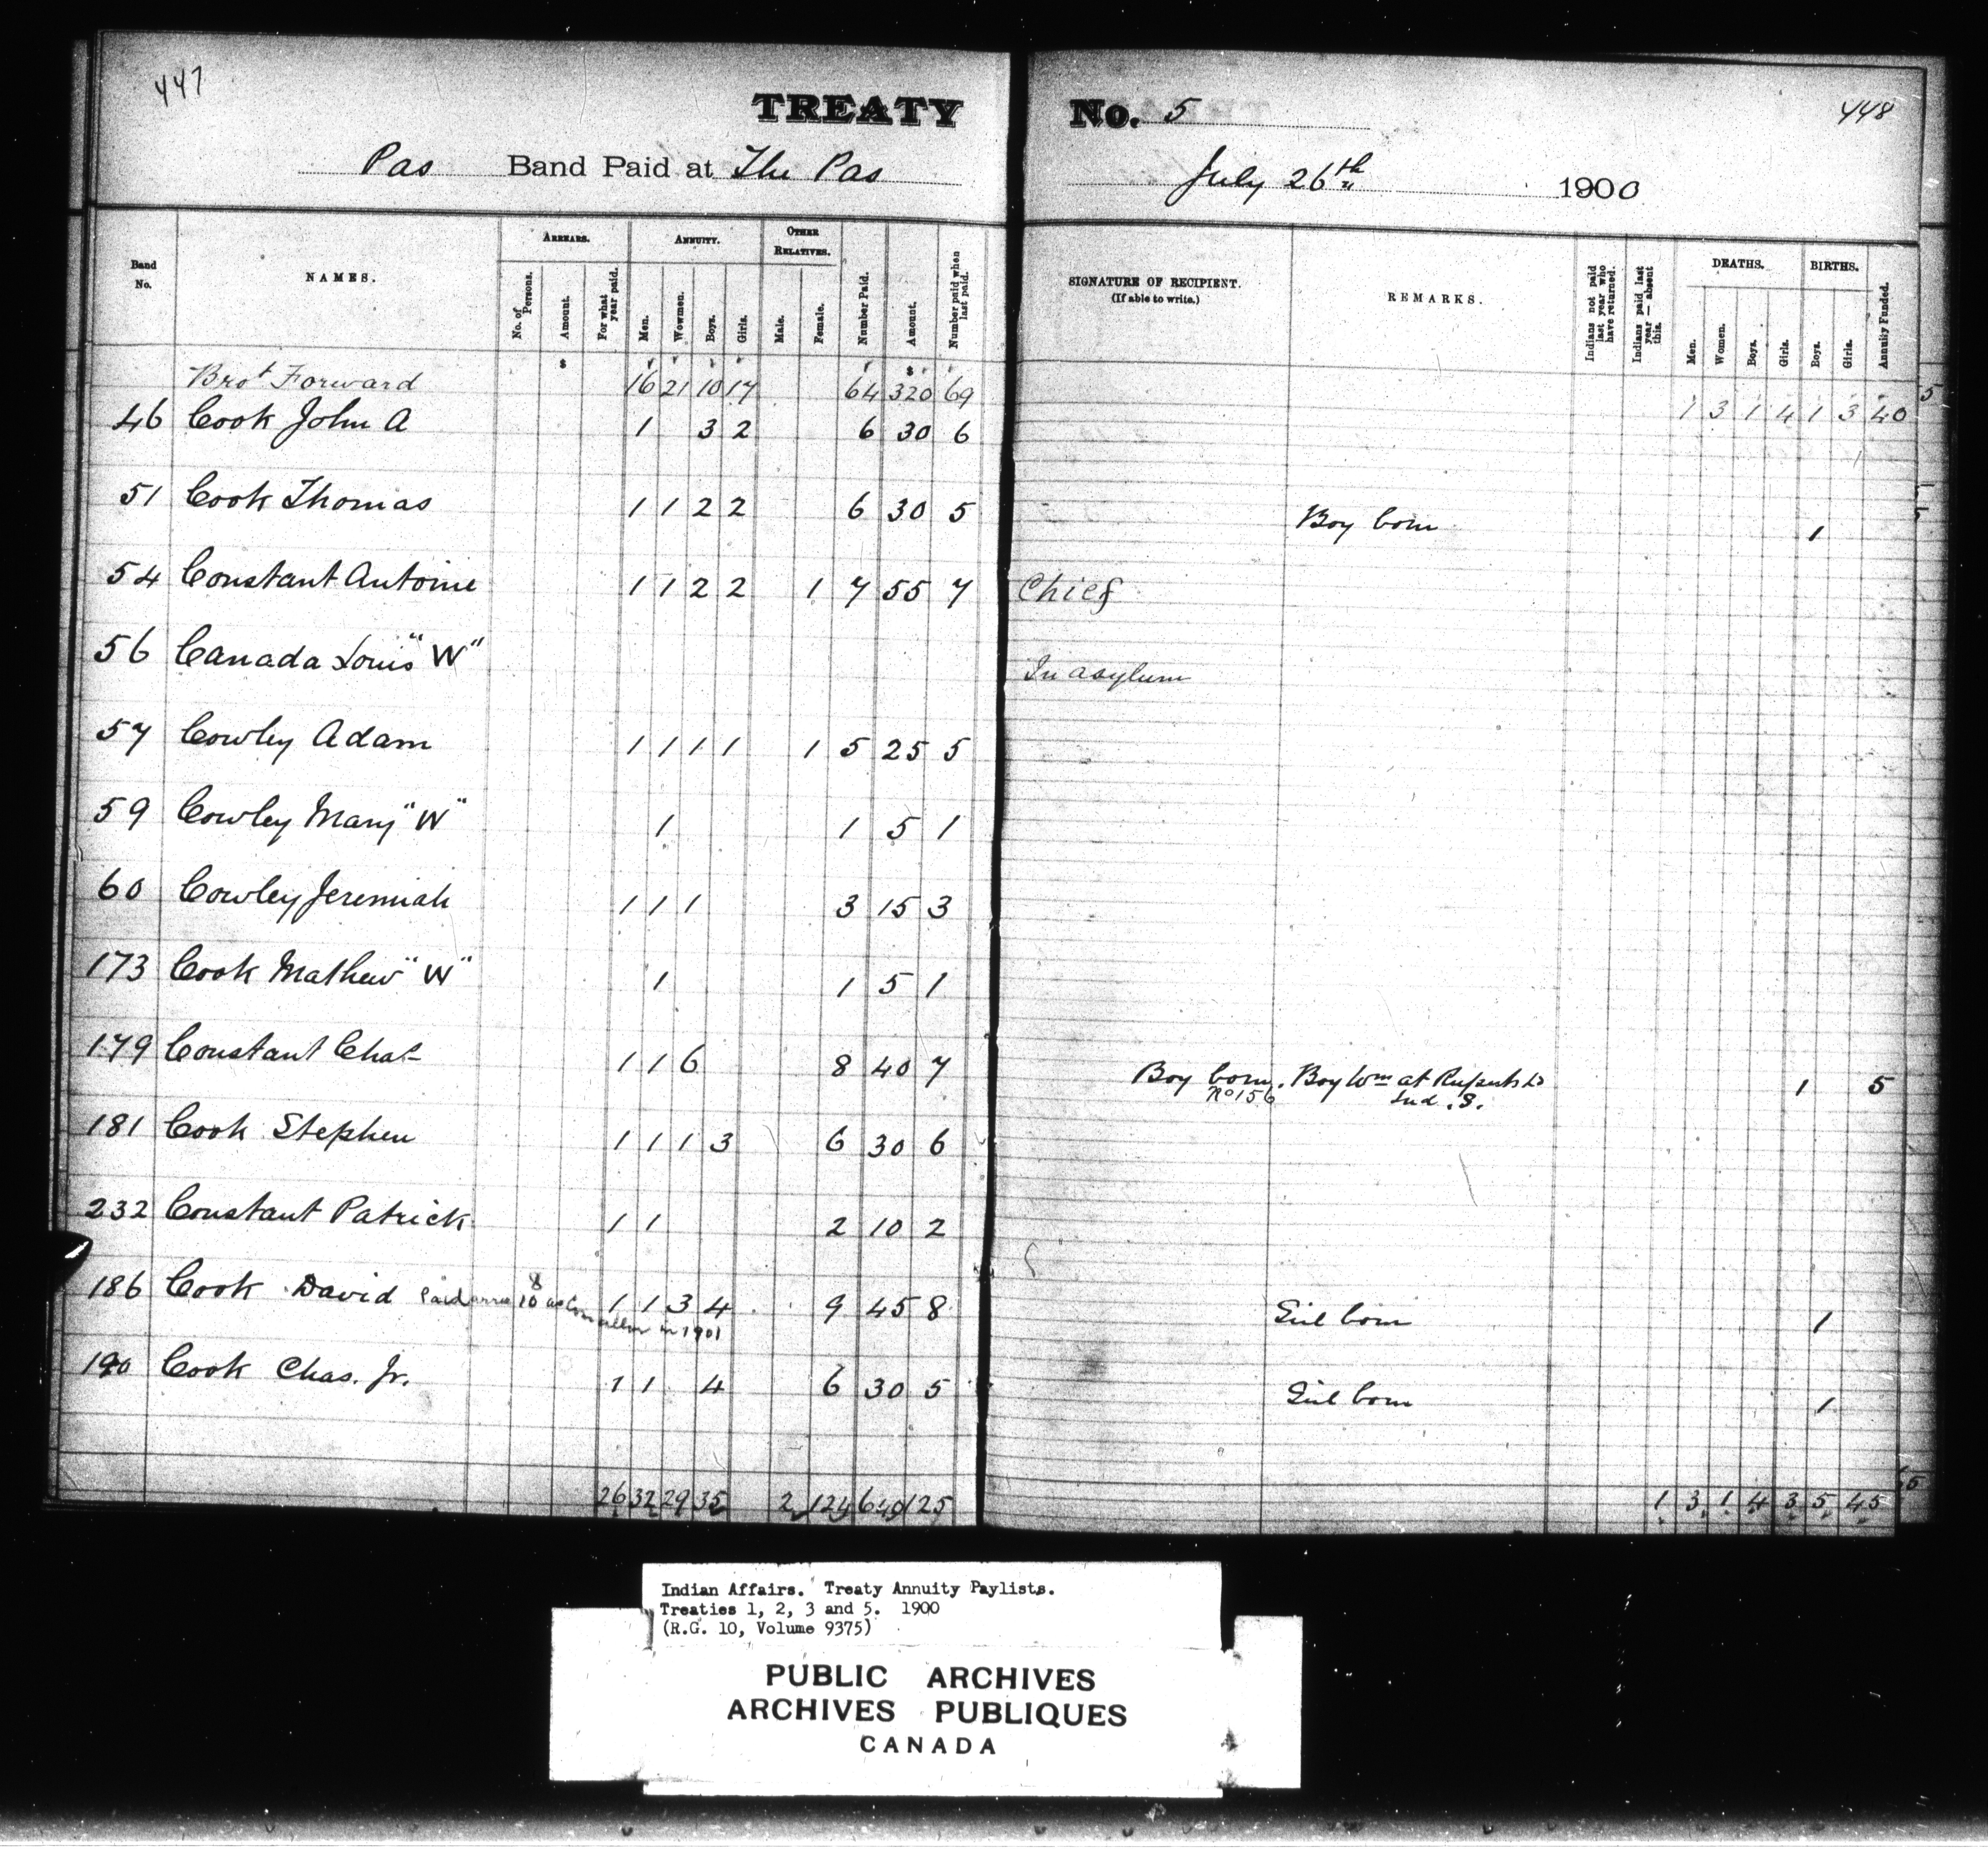 447
TREATY No. 5
448
Pas Band Paid at The Pas July 26th 1900
Band No.
NAMES.
ARREARS.
No. of Persons.
Amount.
For what year paid.
ANNUITY.
Men.
Wowmen.
Boys.
Girls.
OTHER RELATIVES.
Male.
Female.
Number Paid.
Amount.
Number paid when last paid.
SIGNATURE OF RECIPIENT.
(If able to write.)
REMARKS.
Indians not paid last year who have returned.
Indians paid last year — absent this.
DEATHS.
Men.
Women.
Boys.
Girls.
BIRTHS.
Boys.
Girls.
Annuity Funded.
$ $
Brot Forward 16 21 10 17 64 320 69 1 3 1 4 1 3 40
46 Cook John A 1 3 2 6 30 6
51 Cook Thomas 1 1 2 2 6 30 5 Boy born 1
54 Constant Antoine 1 1 2 2 1 7 55 7 Chief
56 Canada Louis "W" In asylum
57 Cowley Adam 1 1 1 1 1 5 25 5
59 Cowley Mary "W" 1 1 5 1
60 Cowley Jeremiah 1 1 1 3 15 3
173 Cook Mathew "W" 1 1 5 1
179 Constant Chas 1 1 6 8 40 7 Boy born. Boy Wm at Ruperts Ld 1 5
No 156 Ind. S.
181 Cook Stephen 1 1 1 3 6 30 6
232 Constant Patrick 1 1 2 10 2
186 Cook David Paid 8 10 as 1 1 3 4 9 45 8 Girl born 1
in 1901
190 Cook Chas. Jr. 1 1 4 6 30 5 Girl born 1
26 32 29 35 2 124 640 125 1 3 1 4 3 5 45
Indian Affairs. Treaty Annuity Paylists.
Treaties 1, 2, 3 and 5. 1900
(R.G. 10, Volume 9375)
PUBLIC ARCHIVES
ARCHIVES PUBLIQUES
CANADA